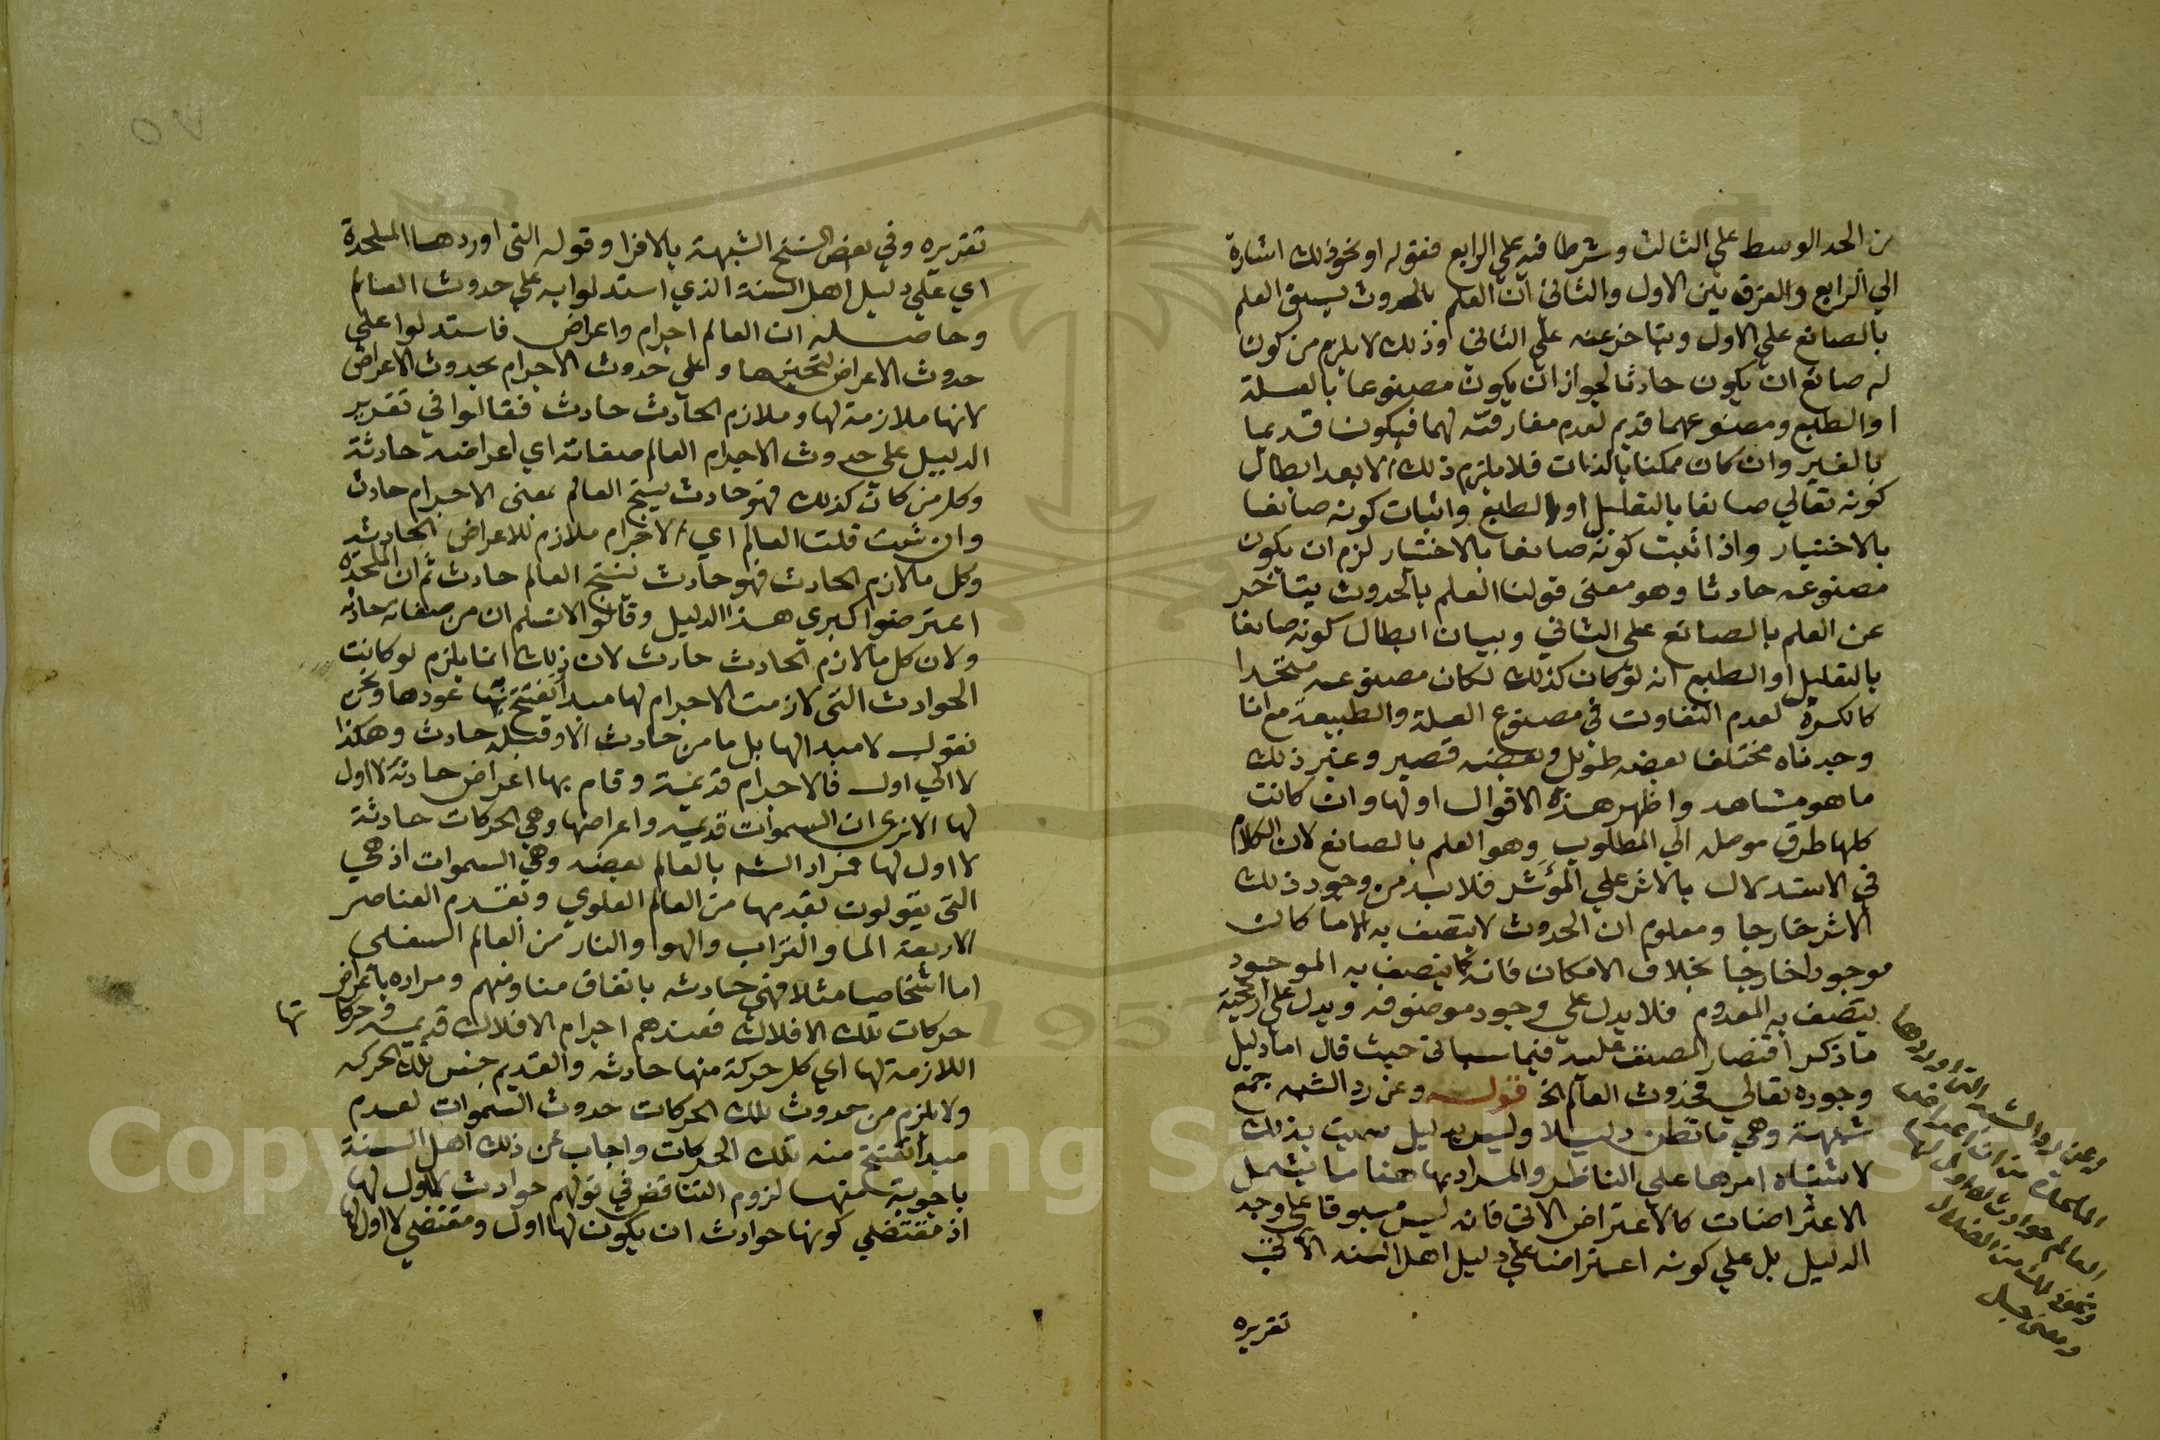 من الحد الوسط علي الثالث وشرطا فيه علي الرابع فقوله او نحو ذلك اشارة
الي الرابع والفرق بين الاول والثاني ان العلم بالحدوث يسبق العلم
بالصانع علي الاول ويتاخر عنه علي الثاني وذلك لا يلزم من كون
له صانع ان يكون حادثا لجواز ان يكون مصنوعا بالعلة
او الطبع ومصنوعهما قديم لعدم مفارقته لهما فيكون قديما
بالغير وان كان ممكنا بالذات فلا يلزم ذلك الا بعد ابطال
كونه تعالي صانعا بالتعليل او الطبع واثبات كونه صانعا
بالاختيار واذا ثبت كونه صانعا بالاختيار لزم ان يكون
مصنوعه حادثا وهو معني قولنا العلم بالحدوث يتاخر
عن العلم بالصانع علي الثاني وبيان ابطال كونه صانعا
بالتعليل او الطبع انه لو كان كذلك لكان مصنوعه متحدا
كالكرة لعدم التفاوت في مصنوع العلة والطبيعة مع انا
وجدناه مختلفا بعضه طويل وبعضه قصير وغير ذلك
ما هو مشاهد واظهر هذه الاقوال اولها وان كانت
كلها طرق موصله الي المطلوب وهو العلم بالصانع لان الكلام
في الاستدلال بالاثر علي المؤثر فلا بد من وجود ذلك
الاثر خارجا ومعلوم ان الحدوث لا يتصف به الا ما كان
موجودا خارجا بخلاف الامكان فانه كما يتصف به الموجود
يتصف به المعدوم فلا يدل علي وجود موصوفه ويدل علي ارجحية
ما ذكر اقتصار المصنف عليه فيما سياتي حيث قال اما دليل
وجوده تعالي فحدوث العالم الخ قوله وعن رد الشبه جمع
شبهة وهي ما تظن دليلا وليس بدليل سميت بذلك
لاشتباه امرها علي الناظر والمراد بها هنا ما يشمل
الاعتراضات كالاعتراض الاتي فانه ليس مسوقا علي وجه
الدليل بل علي كونه اعتراضا علي دليل اهل السنه الآتي
تقريره
وعن رد الشبه التي اوردها
الملحدة
العالم حوادث لا اول لها
ومعني
تقريره وفي بعض النسخ الشبهة بالافراد وقوله التي اوردها الملحدة
اي علي دليل اهل السنة الذي استدلوا به علي حدوث العالم
وحاصله ان العالم اجرام واعراض فاستدلوا علي
حدوث الاعراض بتغيرها وعلي حدوث الاجرام بحدوث الاعراض
لانها ملازمة لها وملازم الحادث حادث فقالوا في تقرير
الدليل علي حدوث الاجرام العالم صفاته اي اعراضه حادثة
وكل من كان كذلك فهو حادث ينتج العالم بمعني الاجرام حادث
وان شئت قلت العالم اي الاجرام ملازم للاعراض الحادثه
وكل ما لازم الحادث فهو حادث ينتج العالم حادث ثم ان الملحدة
اعترضوا كبري هذا الدليل وقالوا لا نسلم ان من صفاته حادثه
ولان كل ما لازم الحادث حادث لان ذلك انما يلزم لو كانت
الحوادث التي لازمت الاجرام لها مبدا تفتتح به عودها ونحن
نقول لا مبدا لها بل ما من حادث الا وقبله حادث وهكذا
لا الي اول فالاجرام قديمة وقام بها اعراض حادثة لا اول
لها الا تري ان السموات قديمه واعراضها وهي الحركات حادثة
لا اول لها فمراد الشه بالعالم بعضه وهي السموات اذ هي
التي يقولون بقدمها من العالم العلوي وبقدم العناصر
الاربعة الما والتراب والهوا والنار من العالم السفلي
اما اشخاصها مثلا فهي حادثه باتفاق منا ومنهم ومراده باعراض
حركات تلك الافلاك فعندهم اجرام الافلاك قديمه وحركا تها
اللازمة لها اي كل حركة منها حادثه والقديم جنس تلك الحركه
ولا يلزم من حدوث تلك الحركات حدوث السموات لعدم
مبدا تفتتح منه تلك الحركات واجاب عن ذلك اهل السنة
باجوبة منها لزوم التناقض في قولهم حوادث لا اول لها
اذ مقتضي كونها حوادث ان يكون لها اول ومقتضي لا اول لها